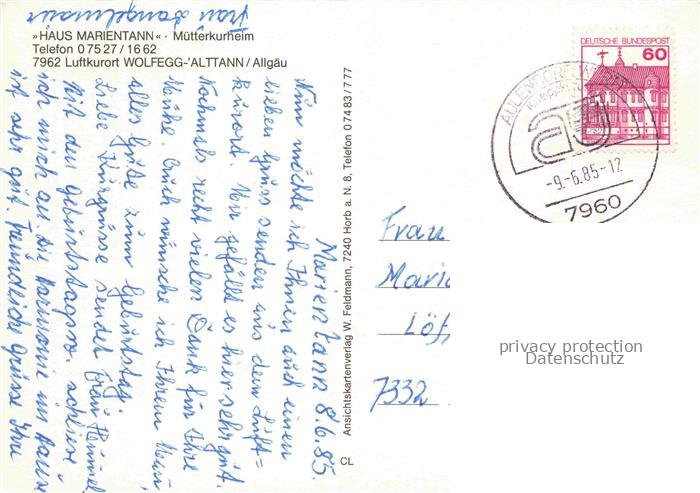 »HAUS MARIENTANN« · Mütterkurheim
Telefon 0 75 27 / 16 62
7962 Luftkurort WOLFEGG-'ALTTANN / Allgäu
Marientann 8.6.85.
Nun möchte ich Ihnen auch einen
lieben Gruss senden aus dem Luft=
kurort. Mir gefällt es hier sehr gut.
Nochmals recht vielen Dank für Ihre
Mühe. Auch wünsche ich Ihrem Mann,
alles Gute zum Geburtstag.
Liebe Kurgrüsse sendet Frau Hümmel
Mit den Geburtstagsw. schliese
ich mich an. Die Harmonie im Hause
ist sehr gut. Freundliche Grüsse Ihre
Frau
Ansichtskartenverlag W. Feldmann, 7240 Horb a. N. 8, Telefon 0 74 83 / 7 77
CL
DEUTSCHE BUNDESPOST
60
AULENDORF
-9.-6.85-12
7960
Frau
Maria
Löf
7332
privacy protection
Datenschutz